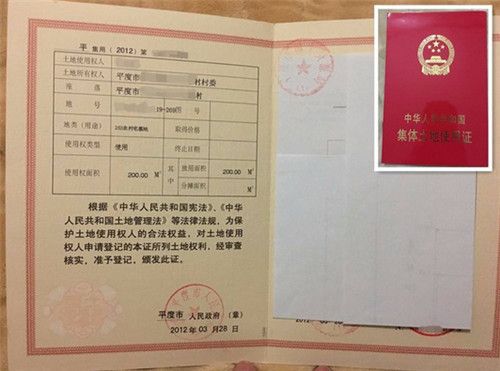 平 集用（2012）第
土地使用权人
土地所有权人 平度市 村村委
座 落 平度市 村
地 号 19-269 图号
地类（用途） 203农村宅基地 取得价格
使用权类型 使用 终止日期
使用权面积 200.00 M² 其中 独用面积 200.00 M²
分摊面积 M²
根据《中华人民共和国宪法》、《中华
人民共和国土地管理法》等法律法规，为保
护土地使用权人的合法权益，对土地使用
权人申请登记的本证所列土地权利，经审查
核实，准予登记，颁发此证。
平度市 人民政府（章）
2012 年 03 月 28 日
中华人民共和国
集体土地使用证